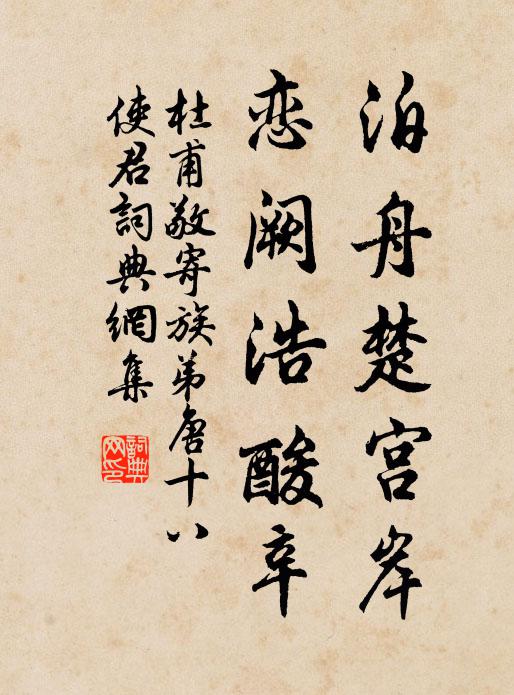 泊舟楚宫岸
恋阙浩酸辛
杜甫敬寄族弟唐十八
使君詞典網集
詞典
网印